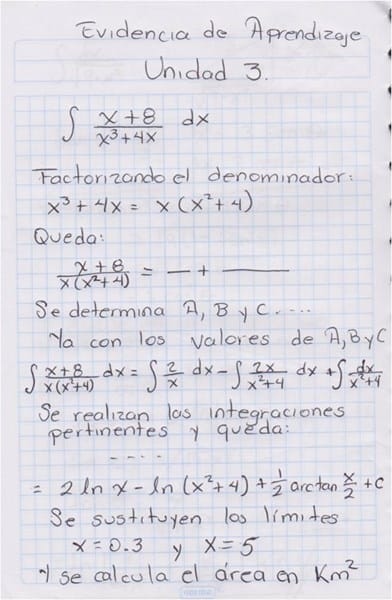 Evidencia de Aprendizaje
Unidad 3.
∫ (x+8)/(x³+4x) dx
Factorizando el denominador:
x³+4x = x(x²+4)
Queda:
(x+8)/(x(x²+4)) = — + ———
Se determina A, B y C.....
Ya con los valores de A, B y C
∫ (x+8)/(x(x²+4)) dx = ∫ 2/x dx - ∫ 2x/(x²+4) dx + ∫ dx/(x²+4)
Se realizan las integraciones
pertinentes y queda:
- - - -
= 2 ln x - ln (x²+4) + 1/2 arctan x/2 + C
Se sustituyen los límites
x = 0.3 y x = 5
Y se calcula el área en Km²
norma